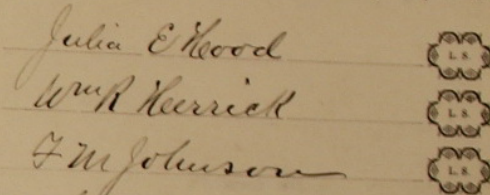 Julia E Hood L. S.
Wm R Herrick L. S.
F M Johnson L. S.